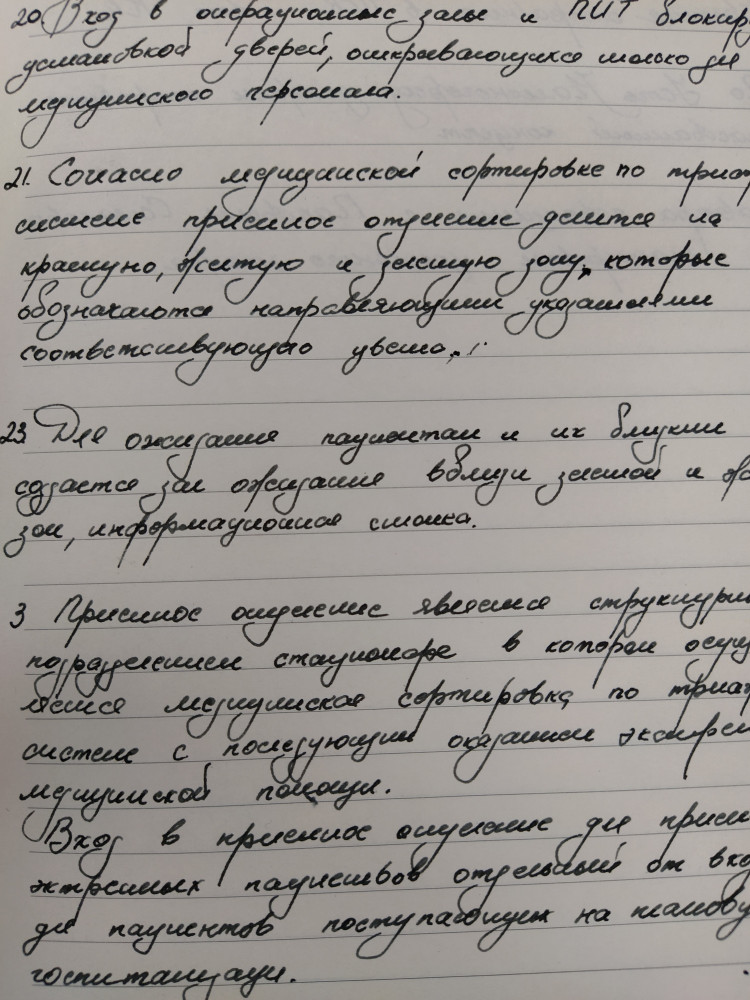 20. Вход в операционные залы и ПИТ блокир
установкой дверей, открывающихся только для
медицинского персонала.
21. Согласно медицинской сортировке по триаж
системе приемное отделение делится на
красную, желтую и зеленую зону, которые
обозначаются направляющими указателями
соответствующего цвета.
23. Для ожидания пациентам и их близким
создается зал ожидания вблизи зеленой и ж
зон, информационная стойка.
3 Приемное отделение является структурн
подразделением стационаре в котором осущ
ляется медицинская сортировка по триаж
системе с последующим оказанием экстрен
медицинской помощи.
Вход в приемное отделение для прием
экстренных пациентов отдельный от вхо
для пациентов поступающих на планову
госпитализации.